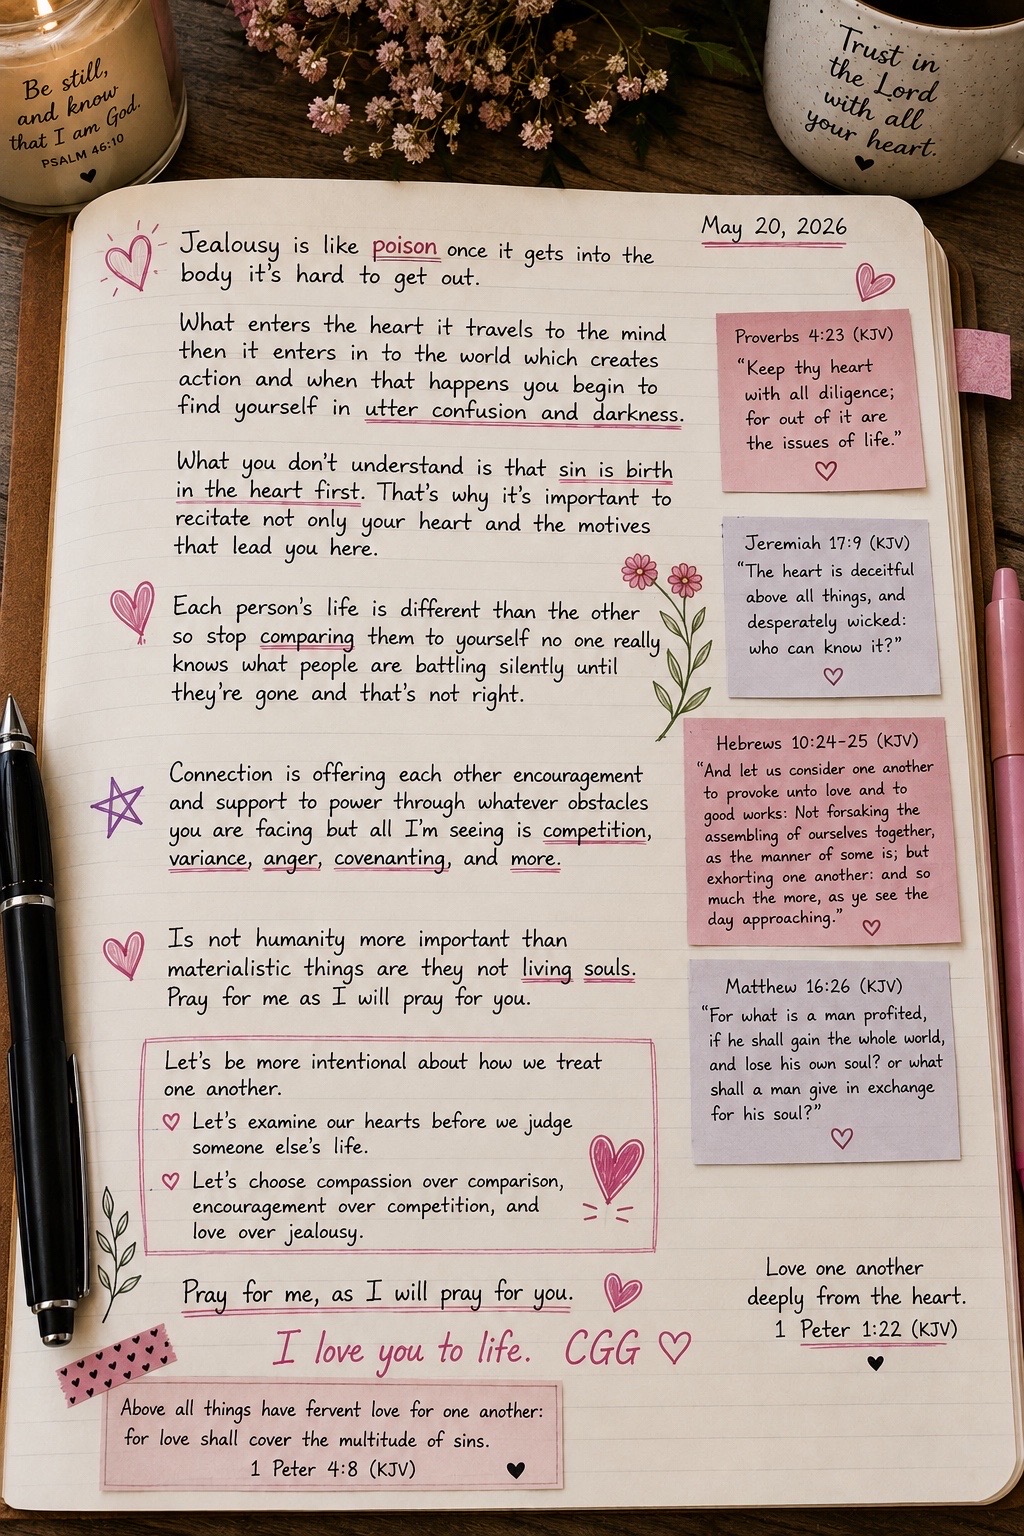 Be still,
and know
that I am God.
PSALM 46:10
Trust in
the Lord
with all
your heart.
May 20, 2026
Jealousy is like poison once it gets into the
body it's hard to get out.
What enters the heart it travels to the mind
then it enters in to the world which creates
action and when that happens you begin to
find yourself in utter confusion and darkness.
What you don't understand is that sin is birth
in the heart first. That's why it's important to
recitate not only your heart and the motives
that lead you here.
Each person's life is different than the other
so stop comparing them to yourself no one really
knows what people are battling silently until
they're gone and that's not right.
Connection is offering each other encouragement
and support to power through whatever obstacles
you are facing but all I'm seeing is competition,
variance, anger, covenanting, and more.
Is not humanity more important than
materialistic things are they not living souls.
Pray for me as I will pray for you.
Let's be more intentional about how we treat
one another.
Let's examine our hearts before we judge
someone else's life.
Let's choose compassion over comparison,
encouragement over competition, and
love over jealousy.
Pray for me, as I will pray for you.
I love you to life. CGG
Above all things have fervent love for one another:
for love shall cover the multitude of sins.
1 Peter 4:8 (KJV)
Proverbs 4:23 (KJV)
"Keep thy heart
with all diligence;
for out of it are
the issues of life."
Jeremiah 17:9 (KJV)
"The heart is deceitful
above all things, and
desperately wicked:
who can know it?"
Hebrews 10:24-25 (KJV)
"And let us consider one another
to provoke unto love and to
good works: Not forsaking the
assembling of ourselves together,
as the manner of some is; but
exhorting one another: and so
much the more, as ye see the
day approaching."
Matthew 16:26 (KJV)
"For what is a man profited,
if he shall gain the whole world,
and lose his own soul? or what
shall a man give in exchange
for his soul?"
Love one another
deeply from the heart.
1 Peter 1:22 (KJV)